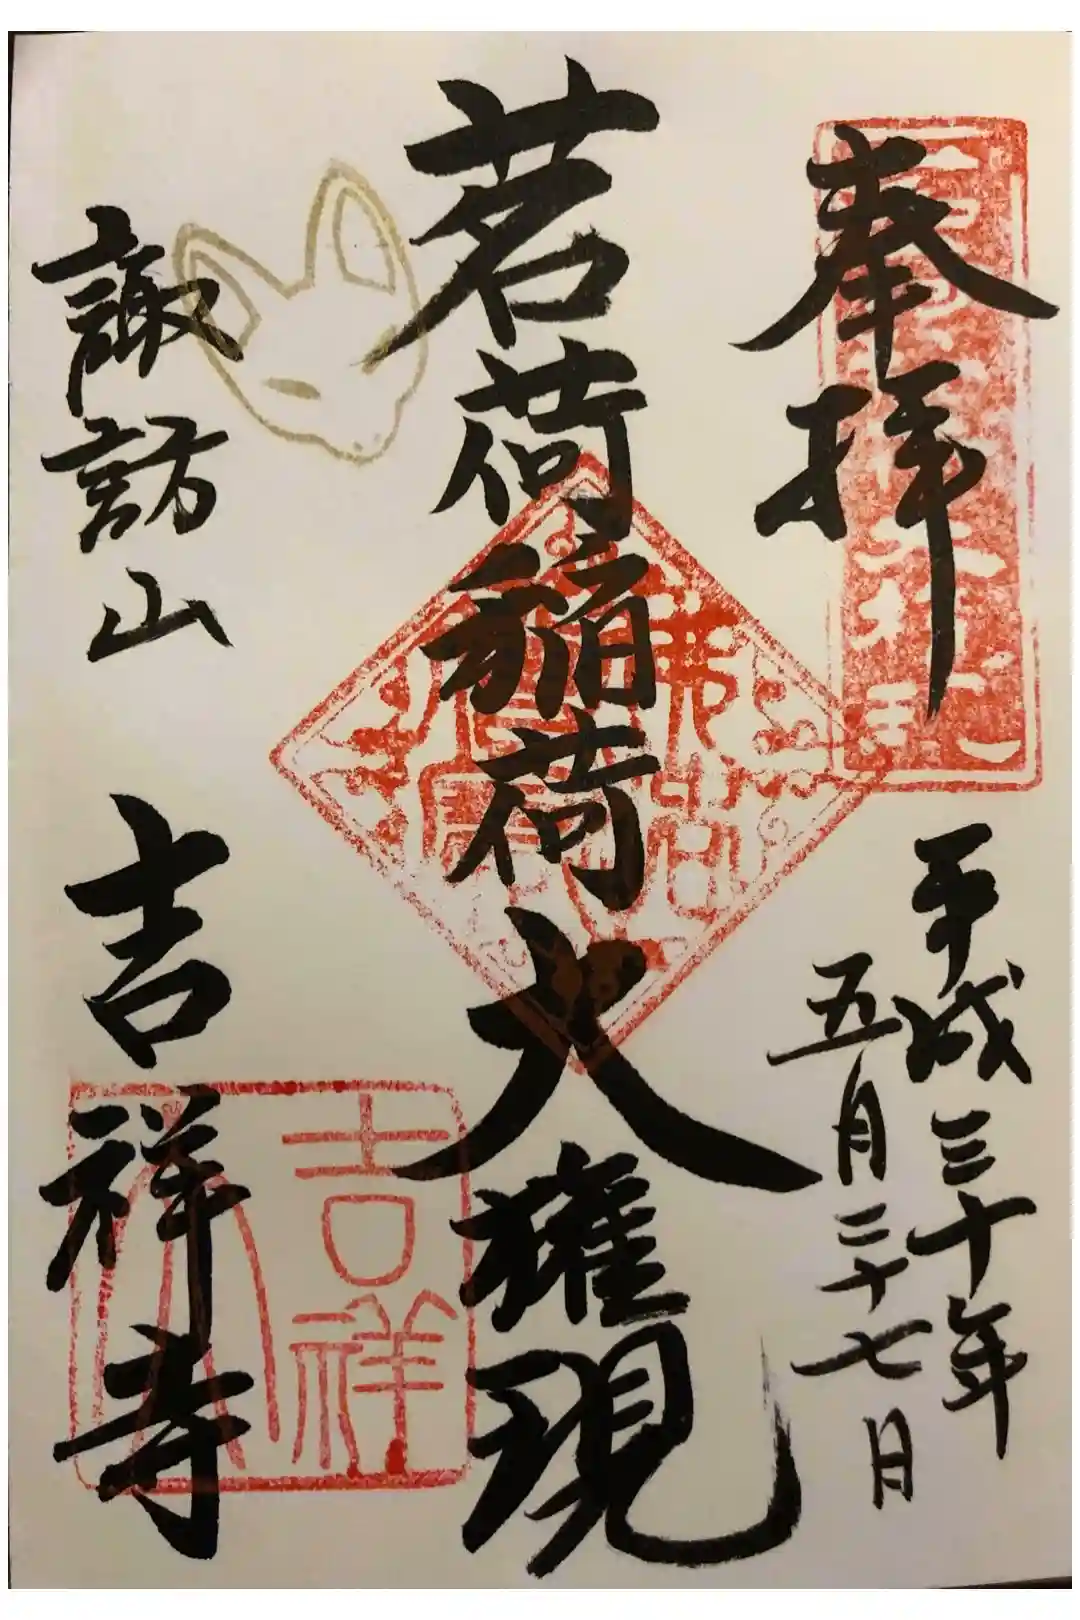 奉拝
平成三十年
五月二十七日
茗荷稲荷大権現
諏訪山
吉祥寺
吉祥
佛法